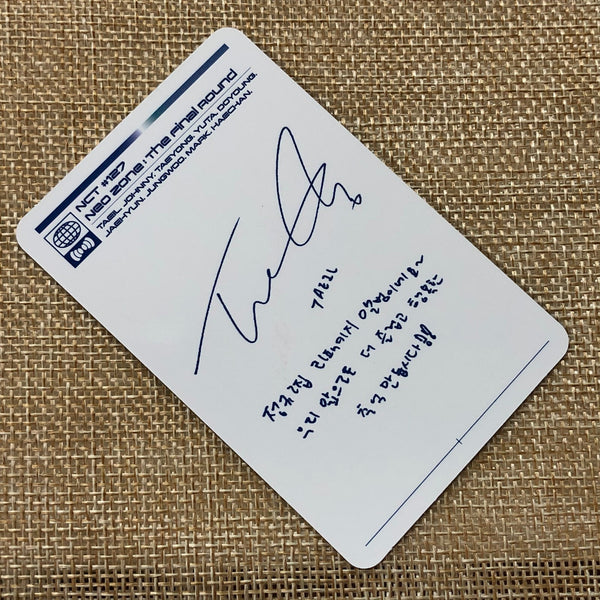 NCT #127
Neo Zone : The Final Round
TAEIL. JOHNNY. TAEYONG. YUTA. DOYOUNG.
JAEHYUN. JUNGWOO. MARK. HAECHAN.
TAEIL
정규2집 리패키지 앨범이네요~
우리 앞으로도 더 즐겁고 행복한
추억 만듭시다